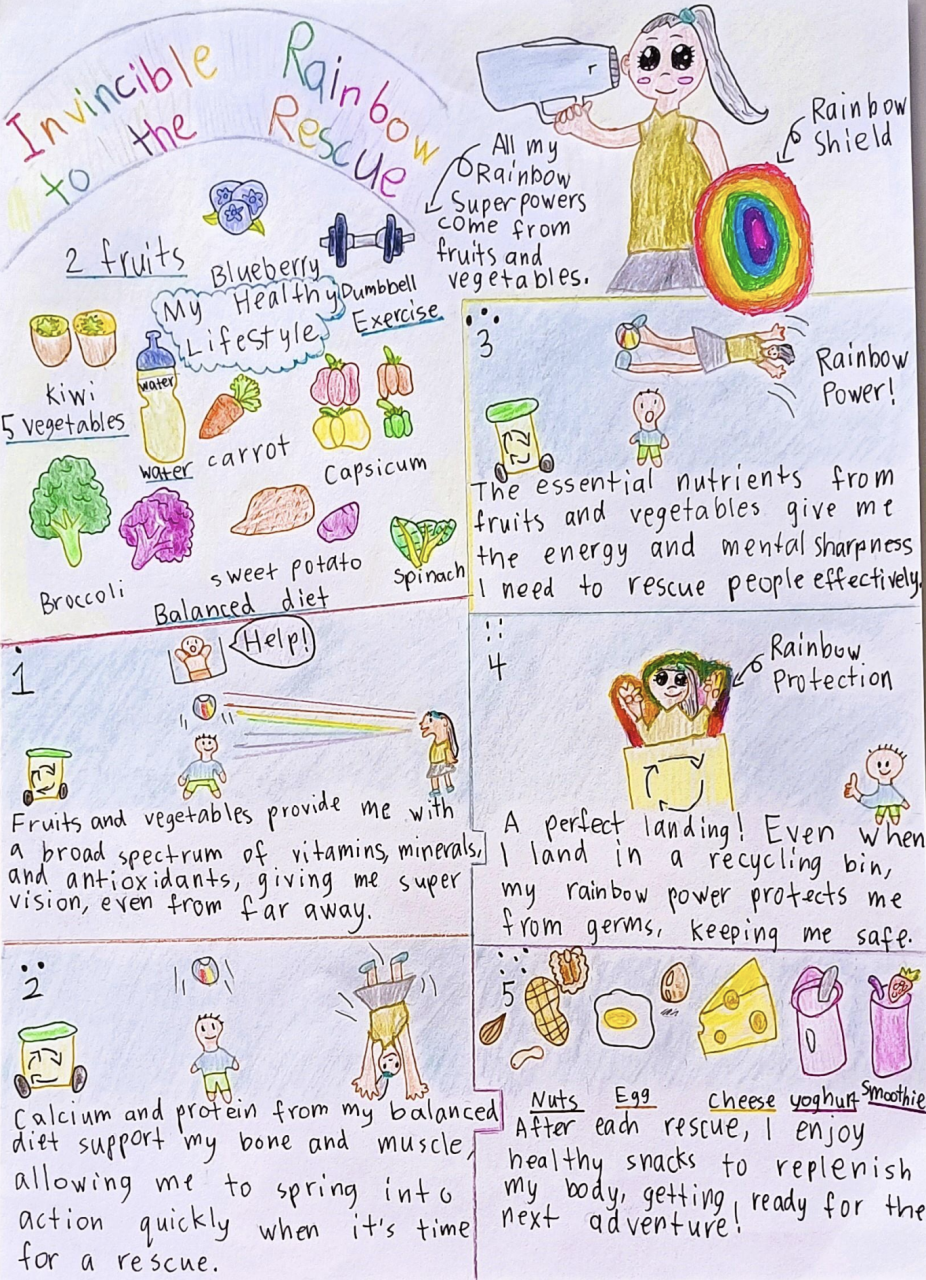 Invincible Rainbow
to the Rescue
All my
Rainbow
Superpowers
come from
fruits and
vegetables.
r
Rainbow
Shield
2 fruits
Blueberry
Dumbbell
Exercise
My Healthy
Lifestyle
Kiwi
5 vegetables
water
water
carrot
Capsicum
Broccoli
sweet potato
Spinach
Balanced diet
1
Help!
Fruits and vegetables provide me with
a broad spectrum of vitamins, minerals,
and antioxidants, giving me super
vision, even from far away.
2
Calcium and protein from my balanced
diet support my bone and muscle,
allowing me to spring into
action quickly when it's time
for a rescue.
3
Rainbow
Power!
The essential nutrients from
fruits and vegetables give me
the energy and mental sharpness
I need to rescue people effectively.
4
Rainbow
Protection
A perfect landing! Even when
I land in a recycling bin,
my rainbow power protects me
from germs, keeping me safe.
5
Nuts Egg Cheese yoghurt Smoothie
After each rescue, I enjoy
healthy snacks to replenish
my body, getting ready for the
next adventure!